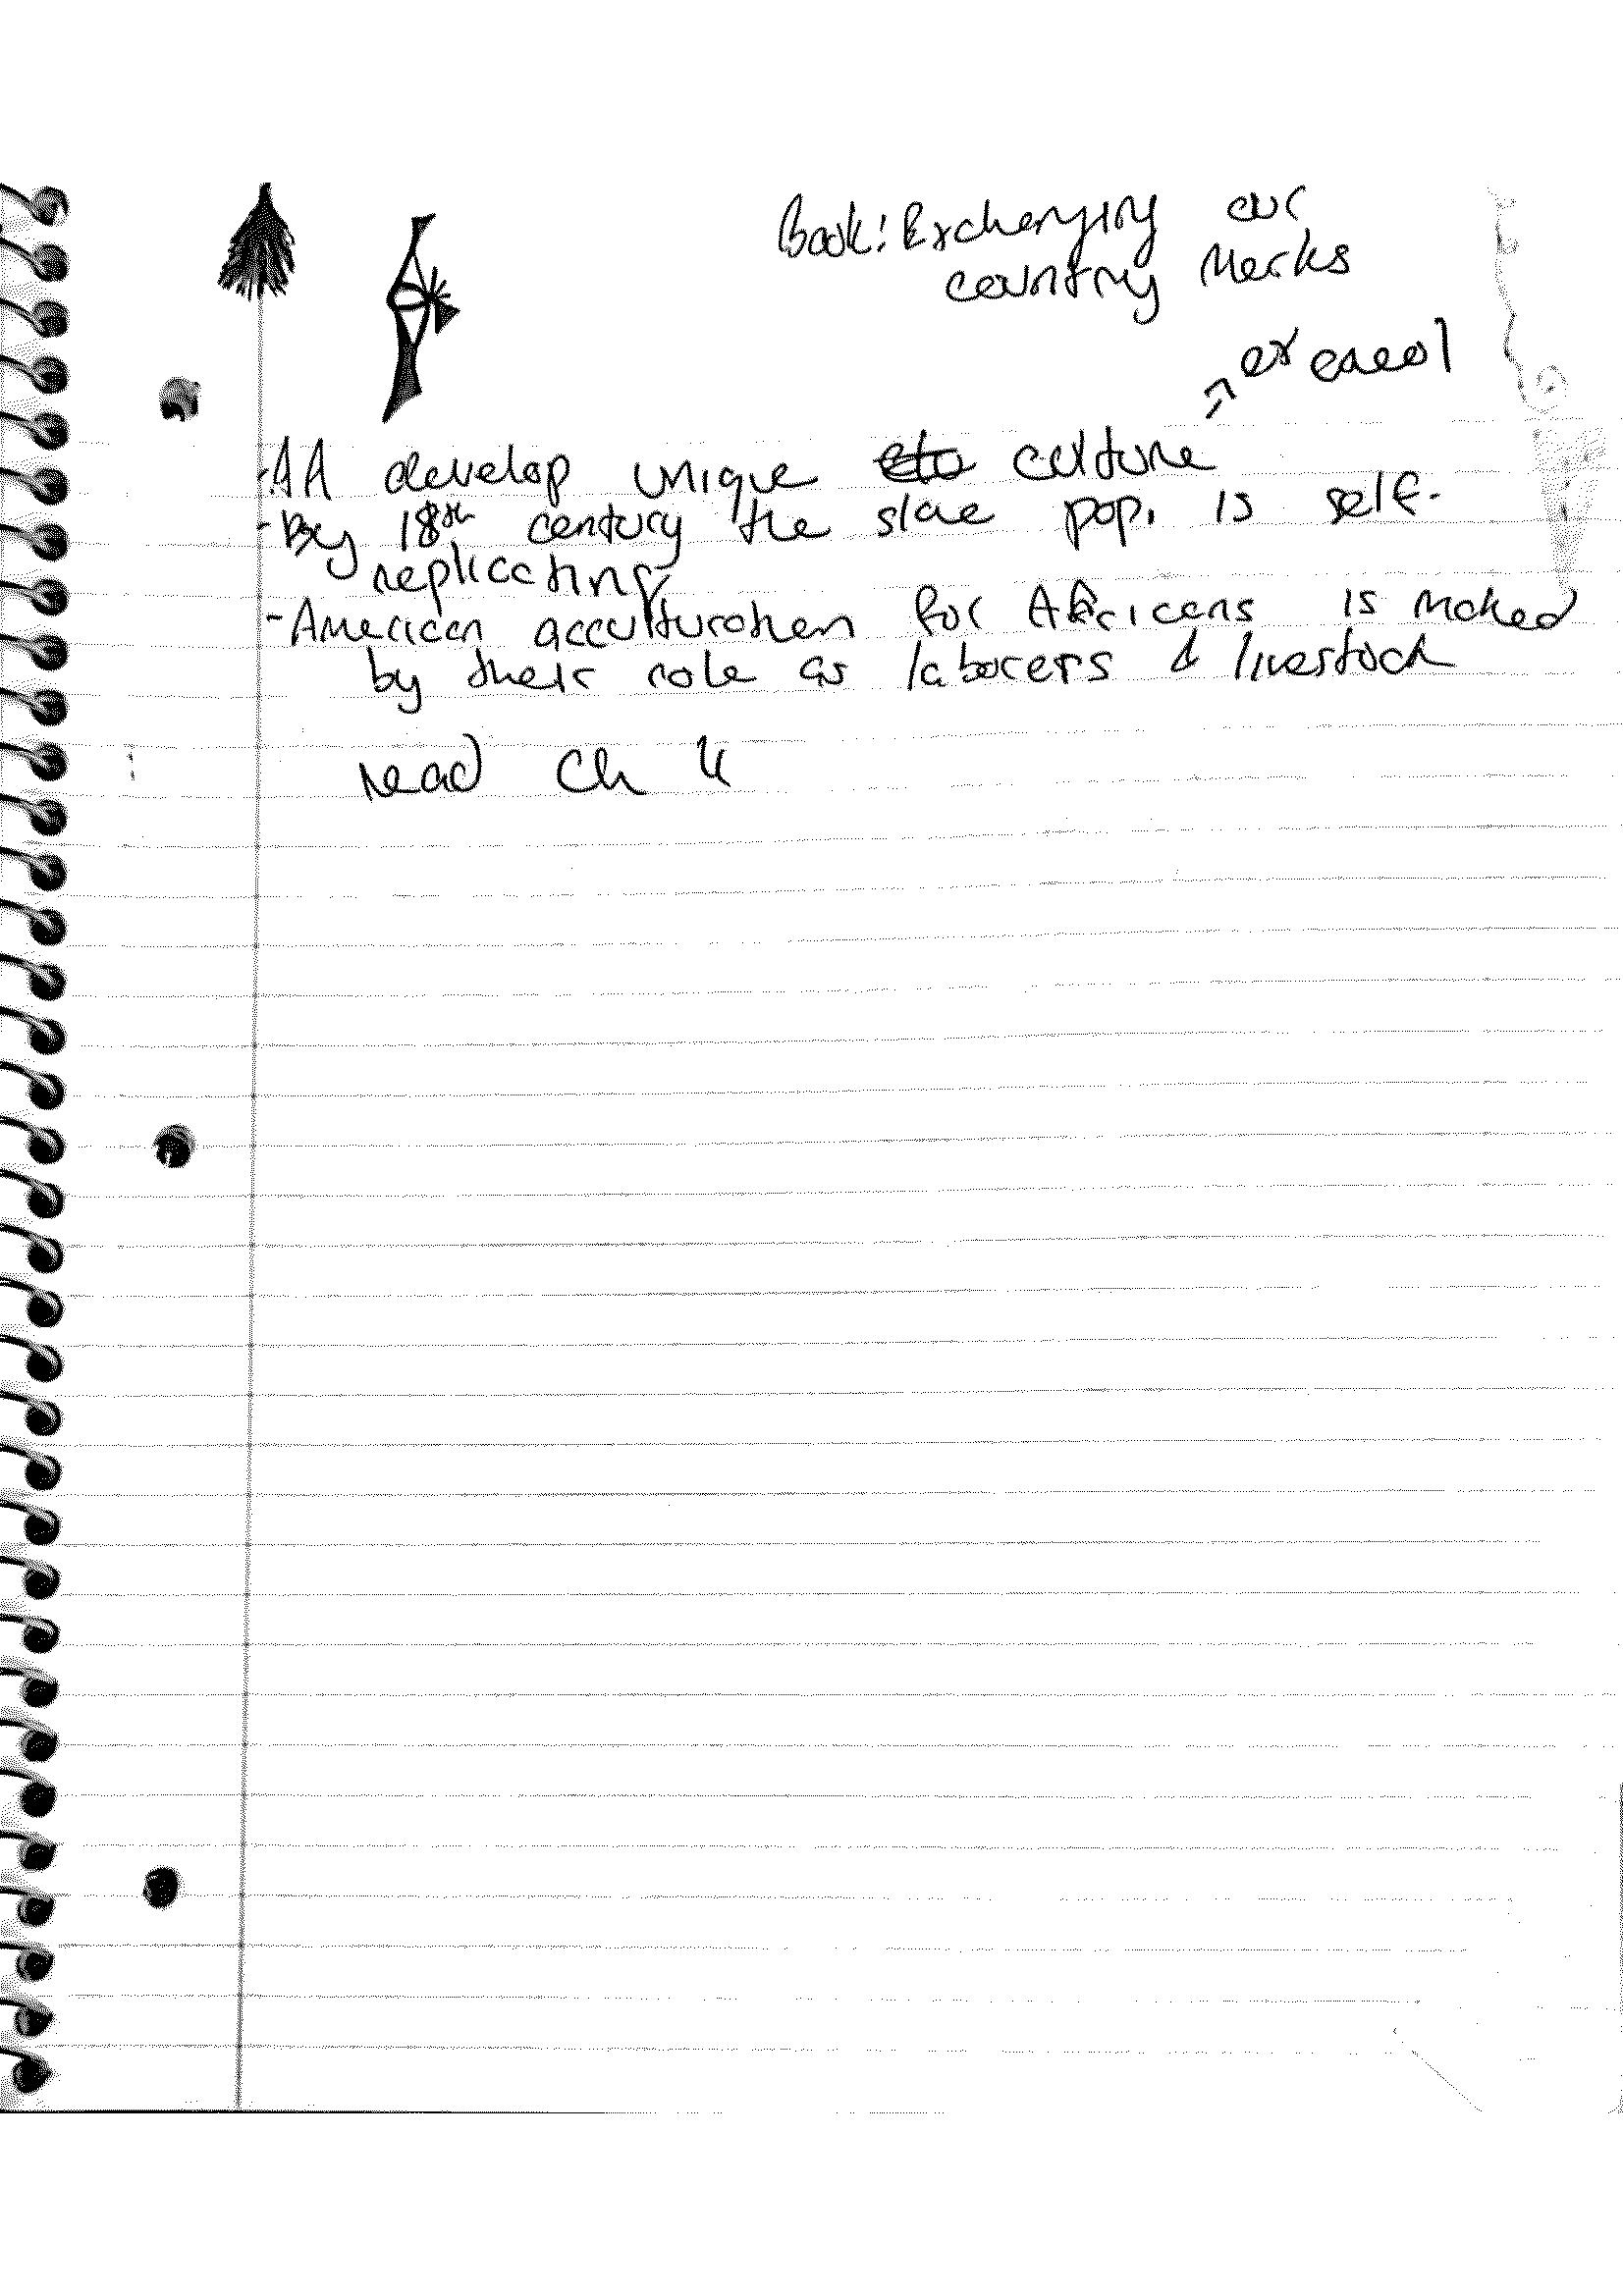 Book: Exchanging our
country Marks
ex
- AA develop unique culture
- By 18th century the slave pop. is self-
replicating
- American acculturation for Africans is
by their role as laborers & livestock
read Ch 4